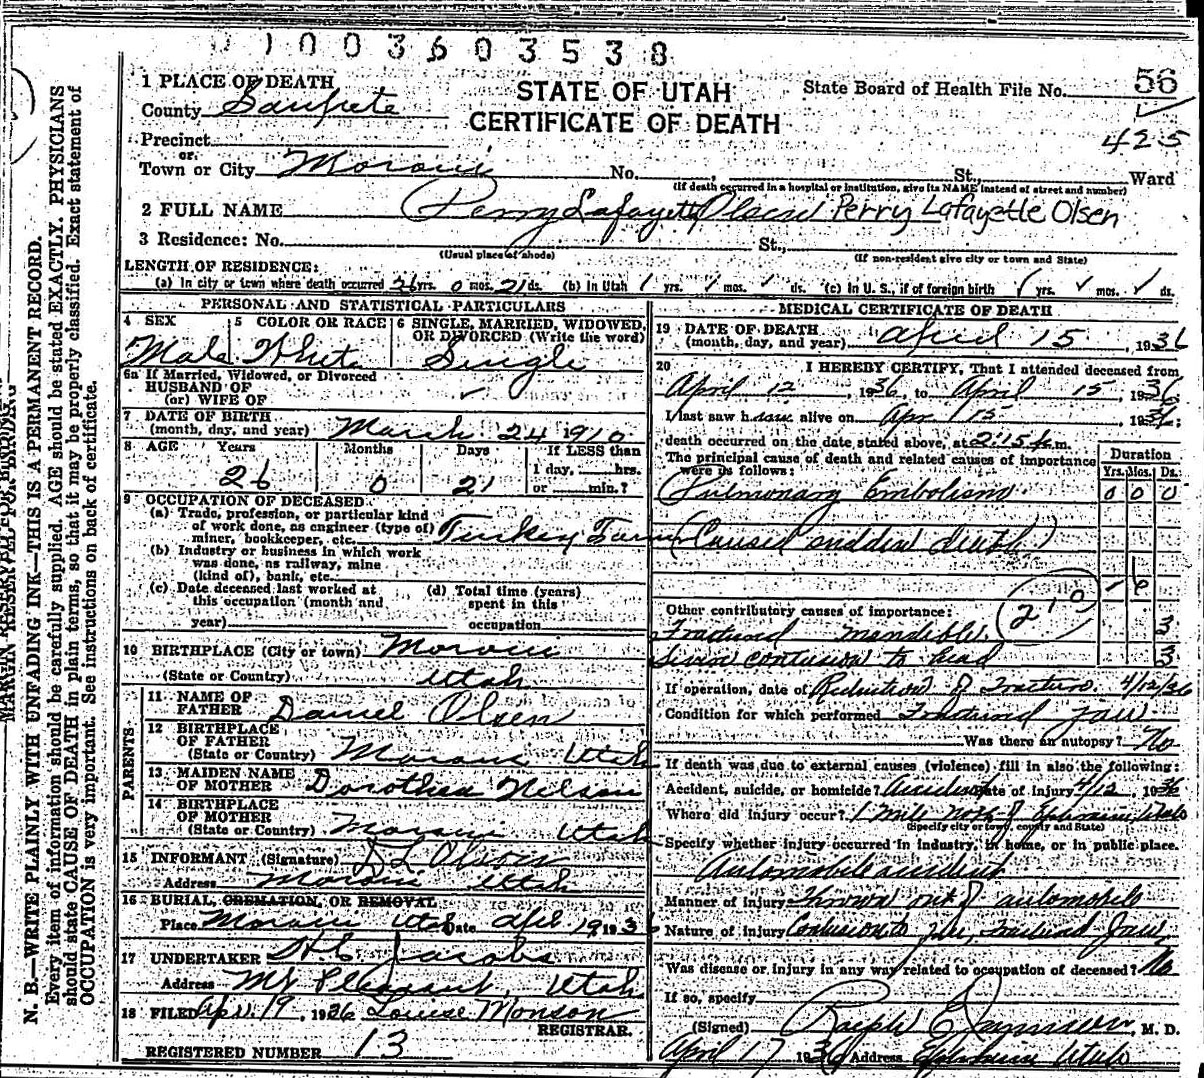 0 1 0 0 3 6 0 3 5 3 8
1 PLACE OF DEATH
County Sanpete
STATE OF UTAH
CERTIFICATE OF DEATH
State Board of Health File No. 56
425
Precinct
or
Town or City Moroni No. , St., Ward
(If death occurred in a hospital or institution, give its NAME instead of street and number)
2 FULL NAME Perry Lafayette Olsen Perry Lafayette Olsen
3 Residence: No. St.,
(Usual place of abode) (If non-resident give city or town and State)
LENGTH OF RESIDENCE:
(a) In city or town where death occurred 26 yrs. 0 mos. 21 ds. (b) In Utah yrs. mos. ds. (c) In U. S., if of foreign birth yrs. mos. ds.
PERSONAL AND STATISTICAL PARTICULARS
4 SEX Male
5 COLOR OR RACE White
6 SINGLE, MARRIED, WIDOWED, OR DIVORCED (Write the word) Single
6a If Married, Widowed, or Divorced
HUSBAND OF
(or) WIFE OF
7 DATE OF BIRTH
(month, day, and year) March 24 1910
8 AGE Years Months Days If LESS than
26 0 21 1 day, hrs.
or min.?
9 OCCUPATION OF DECEASED
(a) Trade, profession, or particular kind
of work done, as engineer (type of)
miner, bookkeeper, etc. Turkey Farm
(b) Industry or business in which work
was done, as railway, mine
(kind of), bank, etc.
(c) Date deceased last worked at
this occupation (month and
year)
(d) Total time (years)
spent in this
occupation
10 BIRTHPLACE (City or town) Moroni
(State or Country) Utah
PARENTS
11 NAME OF
FATHER Daniel Olsen
12 BIRTHPLACE
OF FATHER
(State or Country) Moroni Utah
13 MAIDEN NAME
OF MOTHER Dorothea Nelson
14 BIRTHPLACE
OF MOTHER
(State or Country) Moroni Utah
15 INFORMANT (Signature) D L Olsen
Address Moroni Utah
16 BURIAL, CREMATION, OR REMOVAL
Place Moroni Utah Date April 19, 1936
17 UNDERTAKER Jacobs
Address Mt Pleasant, Utah
18 FILED Apr. 19, 1936 Louise Monson
REGISTRAR.
REGISTERED NUMBER 13
MEDICAL CERTIFICATE OF DEATH
19 DATE OF DEATH
(month, day, and year) April 15, 1936
20 I HEREBY CERTIFY, That I attended deceased from
April 12, 1936, to April 15, 1936
I last saw him alive on Apr 15, 1936;
death occurred on the date stated above, at 2:15 m.
The principal cause of death and related causes of importance
were as follows:
Duration
Yrs. Mos. Ds.
Pulmonary Embolism 0 0 0
(Caused sudden death)
210
Other contributory causes of importance:
Fractured mandible. 3
Severe contusion to head 3
If operation, date of Reduction of Fracture. 4/12/36
Condition for which performed Fractured jaw
Was there an autopsy? No
If death was due to external causes (violence) fill in also the following:
Accident, suicide, or homicide? Accident Date of injury 4/12, 1936
Where did injury occur? 1 mile north of Ephraim, Utah
(Specify city or town, county and State)
Specify whether injury occurred in industry, in home, or in public place.
Automobile accident
Manner of injury Thrown out of automobile
Nature of injury Contusion to jaw, Fractured Jaw
Was disease or injury in any way related to occupation of deceased? No
If so, specify
(Signed) Ralph M. D.
April 17 1936 Address Ephraim Utah
MARGIN RESERVED FOR BINDING
N. B.—WRITE PLAINLY WITH UNFADING INK—THIS IS A PERMANENT RECORD.
Every item of information should be carefully supplied. AGE should be stated EXACTLY. PHYSICIANS
should state CAUSE OF DEATH in plain terms, so that it may be properly classified. Exact statement of
OCCUPATION is very important. See instructions on back of certificate.